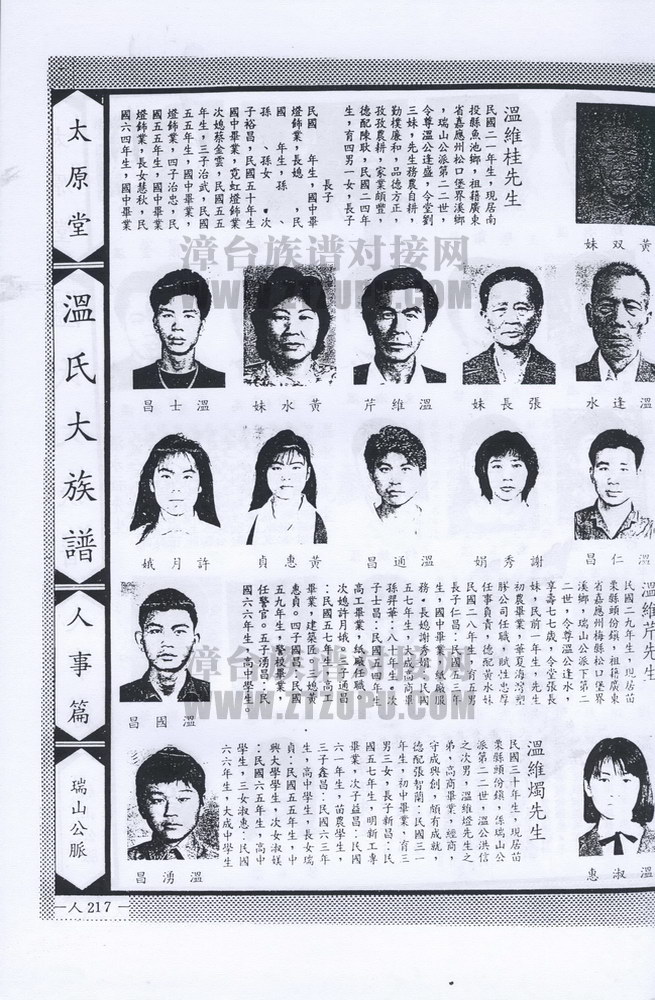 太原堂
溫氏大族譜
人事篇
瑞山公脈
人217
溫維桂先生
民國二一年生，現居南
投縣魚池鄉，祖籍廣東
省嘉應州松口堡界溪鄉
，瑞山公派第二二世，
令尊溫公逢盛，令堂劉
三妹，先生務農自耕，
勤樸廉和，品德方正，
孜孜農耕，家業頗豐，
德配陳耿，民國二四年
生，育四男一女，長子
長子
民國　年生，國中畢業
燈飾業，長媳　，民
國　年生，孫　、
孫　、孫女　。次
子裕昌，民國五十年生
國中畢業，霓虹燈飾業
次媳蔡金雲，民國五五
年生，三子治武，民國
五五年生，國中畢業，
燈飾業，四子治忠，民
國五五年生，國中畢業
燈飾業，長女慧秋，民
國六四年生，國中畢業
妹双黃
昌士溫
妹水黃
芹維溫
妹長張
水逢溫
娥月許
貞惠黃
昌通溫
娟秀謝
昌仁溫
溫維芹先生
民國　九年生，現居苗
栗縣頭份鎮，祖籍廣東
省嘉應州梅縣松口堡界
溪鄉，瑞山公派下第二
二世，令尊溫公逢水，
享壽七七歲，令堂張長
妹，民前一年生，先生
初農畢業，華夏海灣塑
膠公司任職，賦性忠厚
任事負責，德配黃水妹
民國二八年生，育五男
長子仁昌：民國五三年
生，國中畢業，紙廠服
務。長媳謝秀娟：民國
五七年生，大成高商畢
孫羿華：八十年生。次
子士昌：民國五四年生
高工畢業，紙廠任職，
次媳許月娥，三子通昌
：民國五七年生，高工
畢業，建築匠，三媳黃
惠貞。四子國昌：民國
五九年生，警校畢業，
任警官。五子湧昌：民
國六六年生，高中學生。
昌國溫
溫維燭先生
民國三十年生，現居苗
栗縣頭份鎮，係瑞山公
派第二二世，溫公洪信
之次男，溫維燈先生之
弟，高商畢業，經商，
守成興創，頗有成就，
德配張智蘭：民國三一
年生，初中畢業，育三
男三女，長子新昌：民
國五七年生，明新工專
畢業，次子益昌：民國
六一年生，苗農學生，
三子鑫昌：民國六三年
生，高中學生，長女瑞
貞：民國五五年生，中
興大學學生，次女淑媄
：民國六五年生，高中
學生，三女淑惠：民國
六六年生，大成中學生
昌湧溫
惠淑溫
漳台族谱对接网
WWW.ZTZUPU.COM
漳台族谱对接网
WWW.ZTZUPU.COM